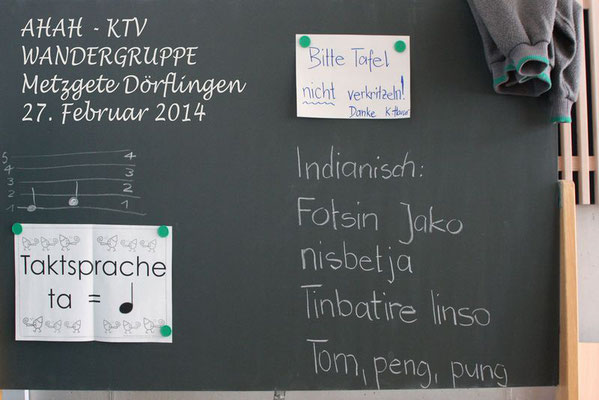 AHAH - KTV
WANDERGRUPPE
Metzgete Dörflingen
27. Februar 2014
Bitte Tafel
nicht verkritzeln!
Danke
5 4
4 3
3 2
2 1
1
Taktsprache
ta = ♩
Indianisch:
Fotsin Jako
nisbetja
Tinbatire linso
Tom, peng, pung